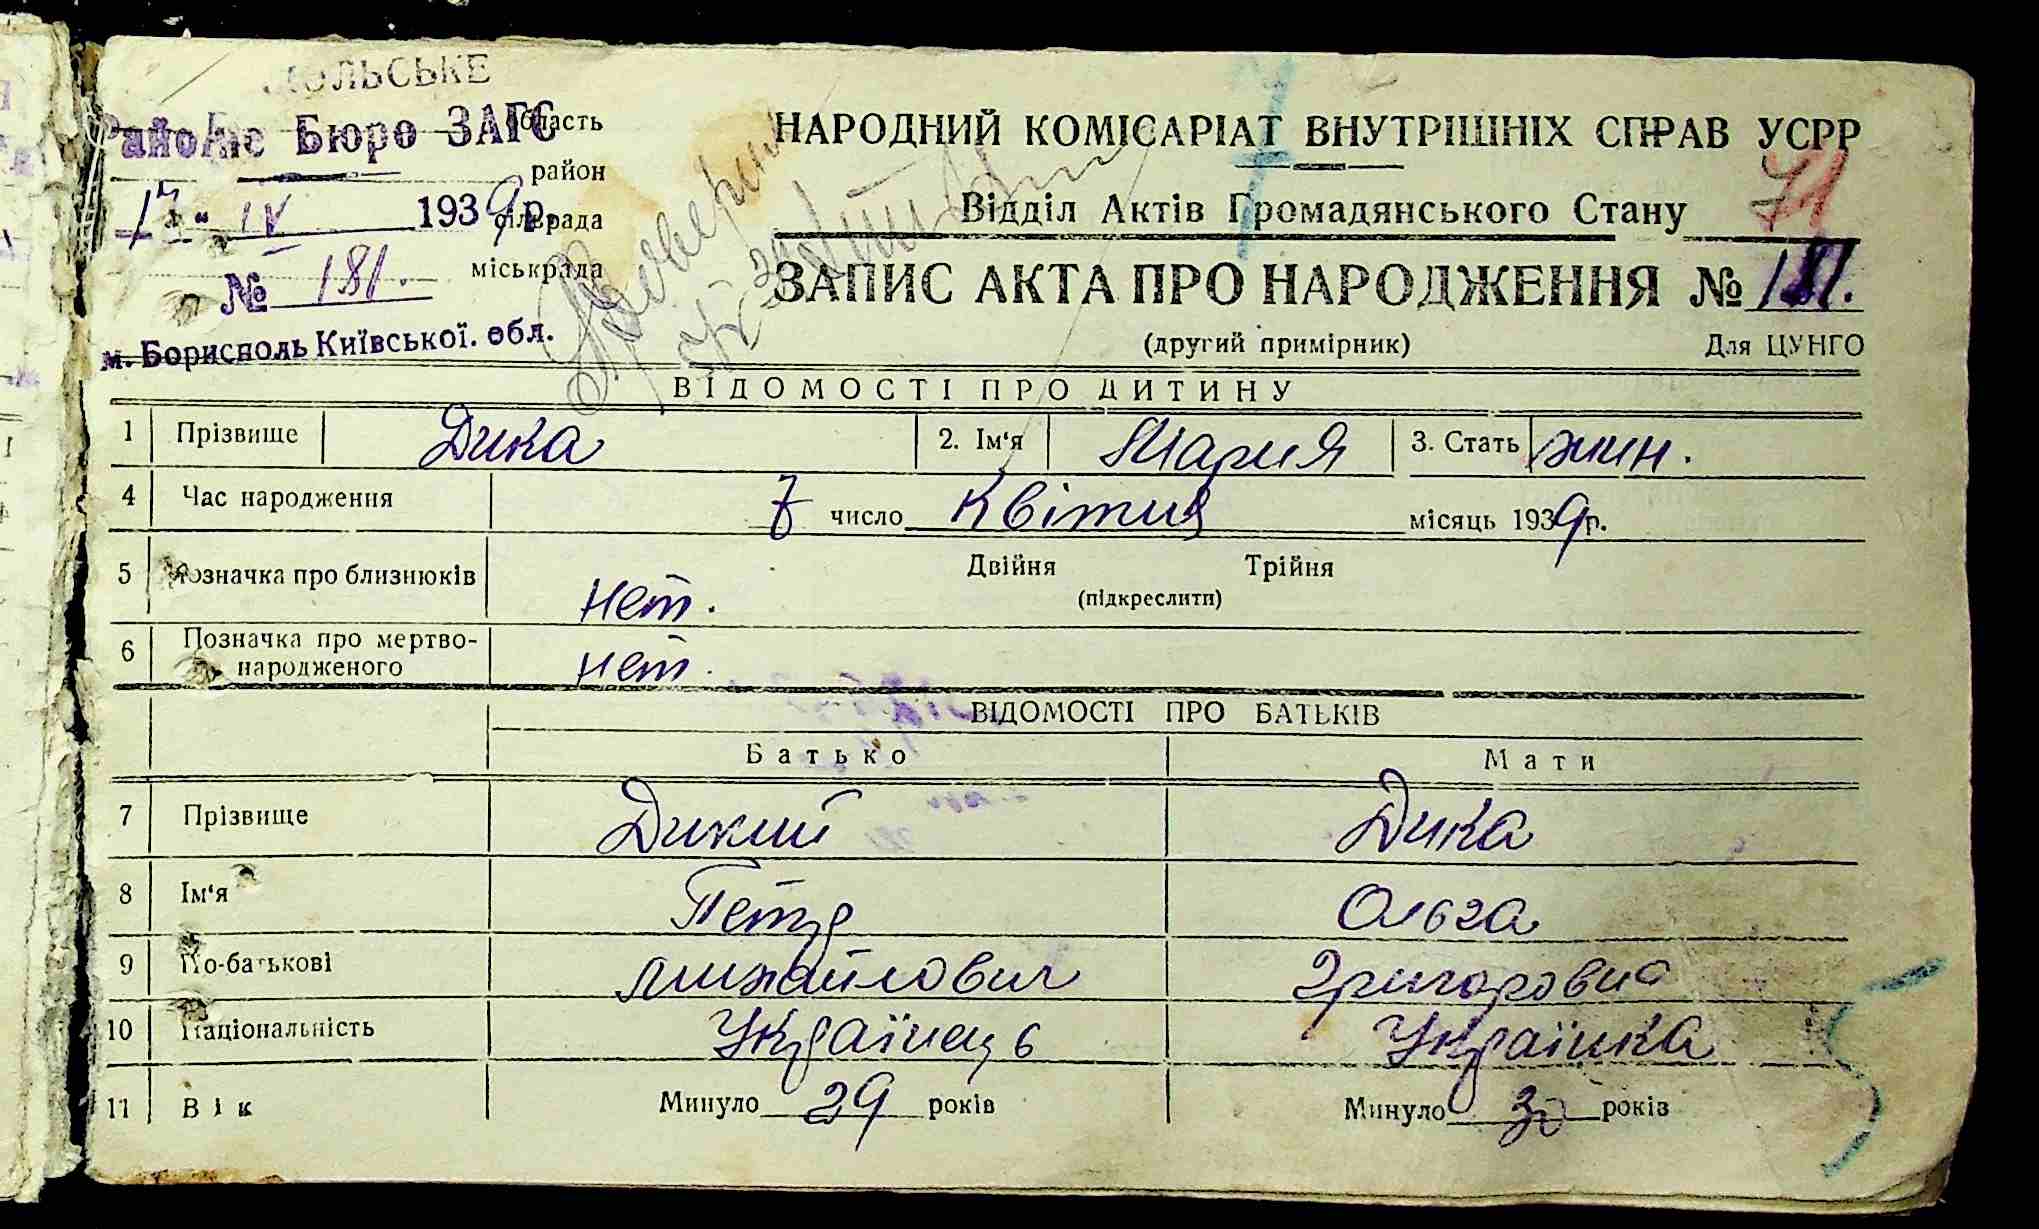 ОЛЬСЬКЕ
Районне Бюро ЗАГС
область
район
17 " IV 1939 р.
сільрада
міськрада
№ 181.
м. Бориспіль Київської. обл.
НАРОДНИЙ КОМІСАРІАТ ВНУТРІШНІХ СПРАВ УСРР
71
Відділ Актів Громадянського Стану
ЗАПИС АКТА ПРО НАРОДЖЕННЯ № 181.
(другий примірник) Для ЦУНГО
ВІДОМОСТІ ПРО ДИТИНУ
1 Прізвище Дика 2. Ім'я Мария 3. Стать жин.
4 Час народження 7 число Квітня місяць 1939 р.
5 Позначка про близнюків нет. Двійня Трійня
(підкреслити)
6 Позначка про мертво-
народженого нет.
ВІДОМОСТІ ПРО БАТЬКІВ
Батько Мати
7 Прізвище Дикий Дика
8 Ім'я Петр Ольга
9 По-батькові Михайлович Григоровна
10 Національність Українець Українка
11 Вік Минуло 29 років Минуло 30 років